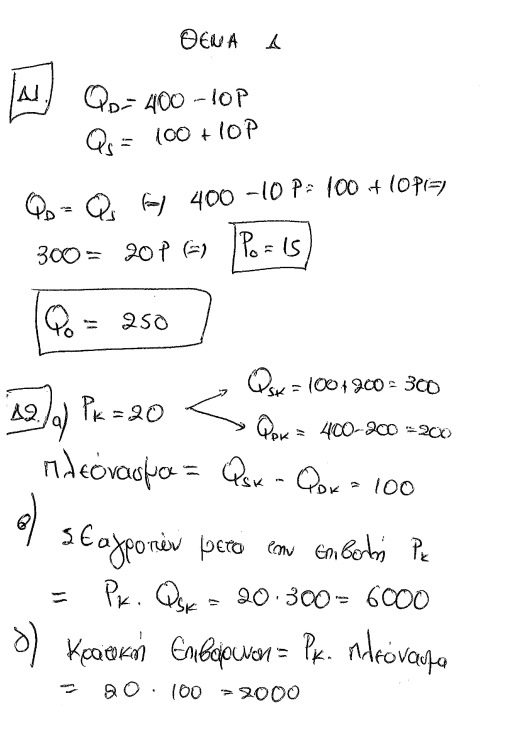 ΘΕΜΑ Δ
Δ1. Q_D = 400 - 10P
Q_S = 100 + 10P
Q_D = Q_S (=) 400 - 10P = 100 + 10P (=)
300 = 20P (=) P_0 = 15
Q_0 = 250
Δ2. α) P_K = 20
Q_SK = 100 + 200 = 300
Q_DK = 400 - 200 = 200
Πλεόνασμα = Q_SK - Q_DK = 100
β) ΣΕαγροτών μετά την επιβολή P_K
= P_K · Q_SK = 20 · 300 = 6000
δ) Κρατική Επιβάρυνση = P_K · πλεόνασμα
= 20 · 100 = 2000